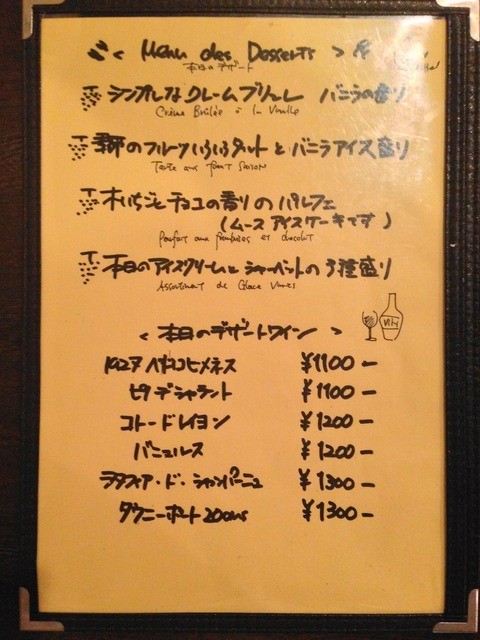 < Menu des Desserts >
本日のデザート
シンプルなクレームブリュレ バニラの香り
Crème Brûlée à la Vanille
季節のフルーツいろいろタルトとバニラアイス盛り
木いちごとチョコの香りのパルフェ
(ムースアイスケーキです)
Parfait aux framboises et chocolat
本日のアイスクリームとシャーベットの3種盛り
Assortiment de Glace
< 本日のデザートワイン >
ペドロヒメネス ¥1100-
ピノ デ シャラント ¥1100-
コトー・ド レイヨン ¥1200-
バニュルス ¥1200-
ラタフィア・ド・シャンパーニュ ¥1300-
タウニーポート 20ans ¥1300-